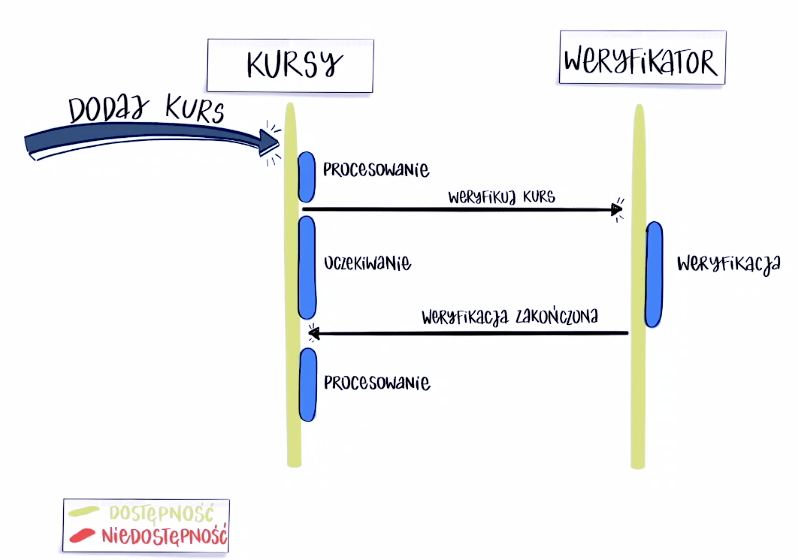 KURSY
WERYFIKATOR
DODAJ KURS
PROCESOWANIE
WERYFIKUJ KURS
OCZEKIWANIE
WERYFIKACJA
WERYFIKACJA ZAKOŃCZONA
PROCESOWANIE
DOSTĘPNOŚĆ
NIEDOSTĘPNOŚĆ